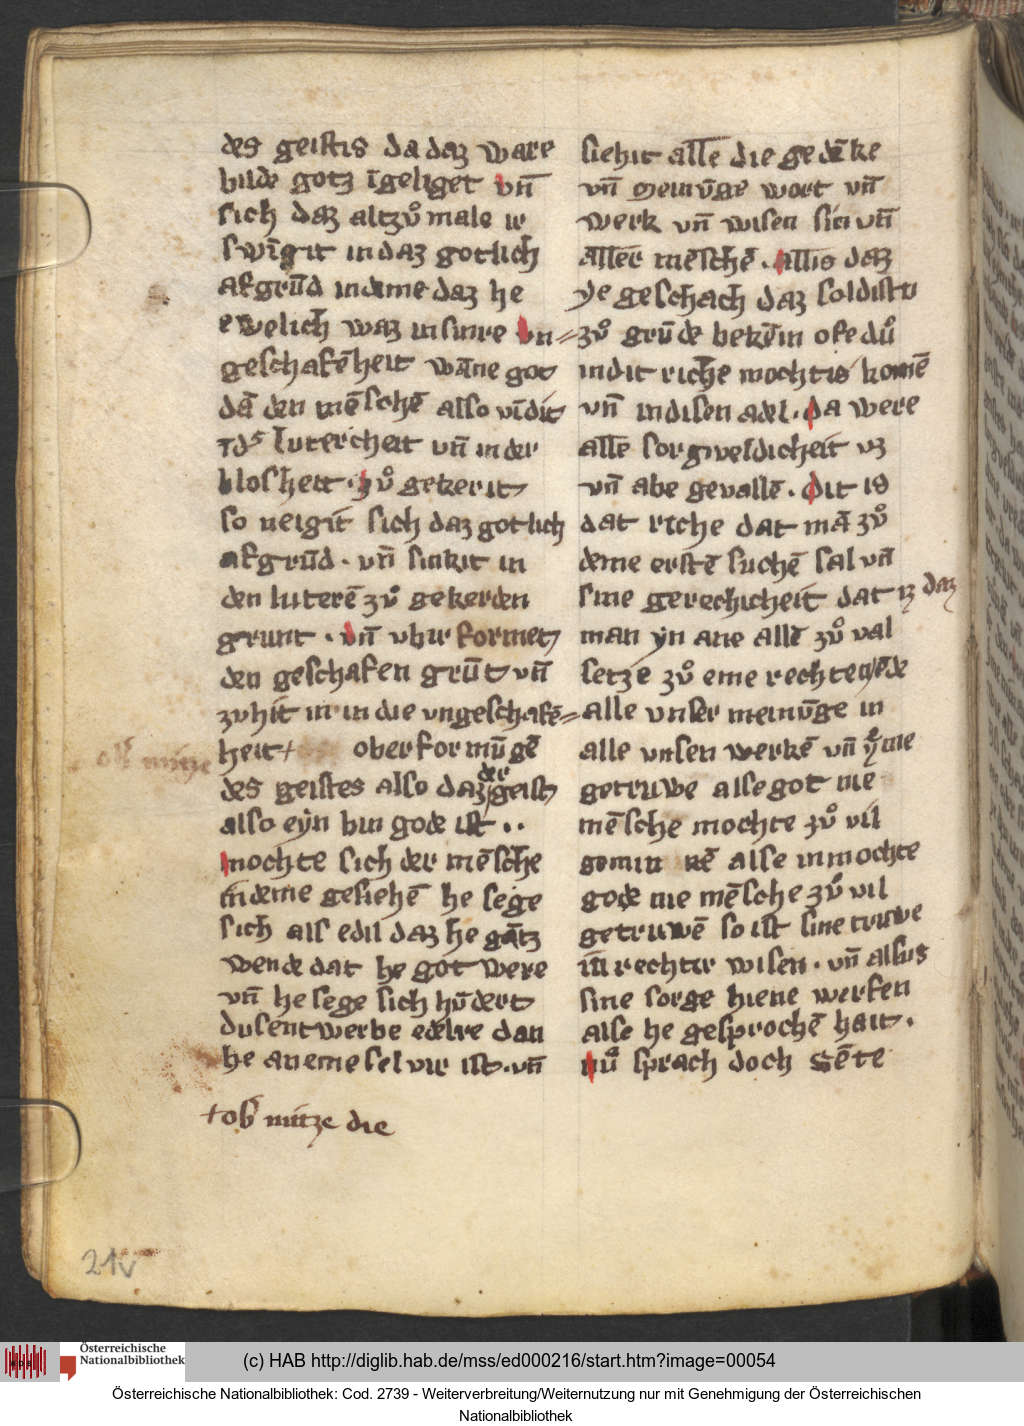 des geistis da daz ware
bilde gotz īgeliget vn̄
sich daz altzuͦ male ir
swīgit in daz gotlich
afgrūd in deme daz he
ewelich waz in sinre vn⸗
geschafēheit wāne got
dā den mēschē also vīdit
luterheit vn̄ in der
blosheit · zuͦ gekerit
so neigit sich daz gotlich
afgrūd · vn̄ sinkit in
den luterē zuͦ gekerden
grunt · vn̄ vbir formet
den geschafen grūt vn̄
zuhit in in die ungeschafē⸗
heit+ oberformūgē
des geistes also daz der geist
also eyn bin gode ist ··
mochte sich der mēsche
in deme gesiehē he sege
sich als edil daz he gātz
wende dat he got were
vn̄ he sege sich hūdert
dusentwerbe edelre dan
he an eme selvir ist · vn̄
+ob nütze die
siehit alle die gedēke
vn̄ meinūge wort vn̄
werk vn̄ wisen sin vn̄
aller mēschē · allis daz
ye geschach daz soldistu
zuͦ grūde bekēin ofe duͦ
in dit riche mochtis komē
vn̄ in disen adel · da were
alle sorgveldicheit vz
vn̄ abe gevallē · dit is
dat riche dat mā zuͦ
deme erstē suchē sal vn̄
sine gerechicheit dat iz daz
man yn ane allē zuͦ val
setze zuͦ eme rechten ēde
alle unser meinūge in
alle unsen werkē vn̄ yme
getruwe alse got nie
mēsche mochte zuͦ vil
gemin nē alse in mochte
gode nie mēsche zuͦ vil
getruwē so ist sine truwe
in rechter wisen · vn̄ alsus
sine sorge hiene werfen
alse he gesprochē hait ·
nuͦ sprach doch sēte
21v
(c) HAB http://diglib.hab.de/mss/ed000216/start.htm?image=00054
Österreichische
Nationalbibliothek
Österreichische Nationalbibliothek: Cod. 2739 - Weiterverbreitung/Weiternutzung nur mit Genehmigung der Österreichischen
Nationalbibliothek